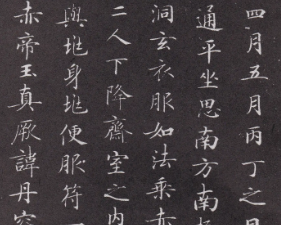 四月五月丙丁之日
通平坐思南方南
洞玄衣服如法乘赤
二人下降齋室之内
與垗身垗便服符一
赤帝玉真厥諱丹容